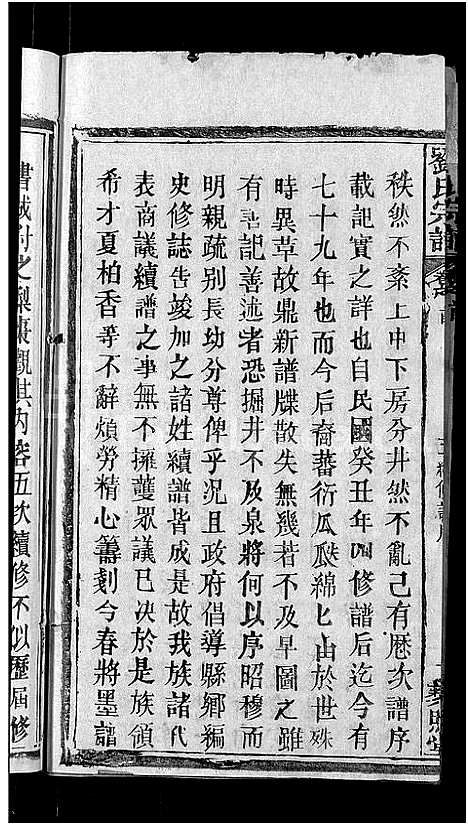 劉氏宗譜
秩然不紊上中下房分井然不亂己有歷次譜序
載記實之詳也自民國癸丑年四修譜后迄今有
七十九年也而今后裔蕃衍瓜瓞綿匕由於世殊
時異草故鼎新譜牒散失無幾若不及早圖之雖
有記善述者恐掘井不及泉將何以序昭穆而
明親疏别長幼分尊俾乎况且政府倡導縣鄉編
史修誌告竣加之諸姓續譜皆成是故我族諸代
表商議續譜之事無不擁護眾議已决於是族領
希才夏柏香等不辭煩勞精心籌劃今春將墨譜
書城付之梨棗觀其內容五次續修不以歷屆修